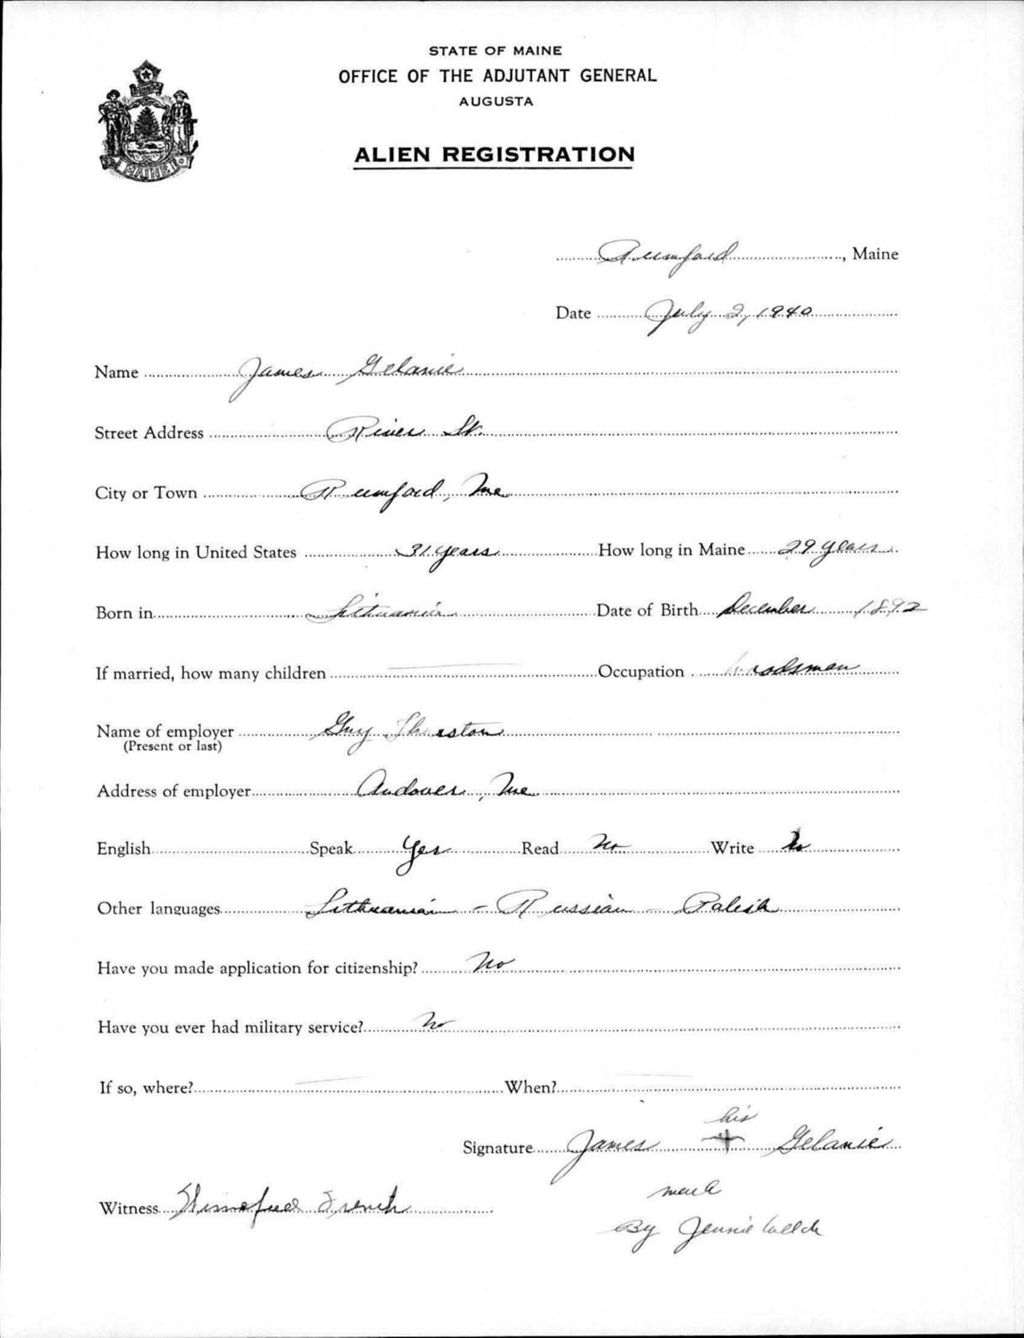 STATE OF MAINE
OFFICE OF THE ADJUTANT GENERAL
AUGUSTA
ALIEN REGISTRATION
MAINE
Rumford, Maine
Date July 2, 1940
Name James Gelanie
Street Address River St.
City or Town Rumford, Me
How long in United States 31 years How long in Maine 29 years
Born in Lithuania Date of Birth December 1892
If married, how many children — Occupation Woodsman
Name of employer Guy Thurston
(Present or last)
Address of employer Andover, Me.
English Speak Yes Read No Write No
Other languages Lithuanian - Russian - Polish
Have you made application for citizenship? No
Have you ever had military service? No
If so, where? — When? —
his
Signature James + Gelanie
mark
Witness Winnefred French
By Jennie Welch